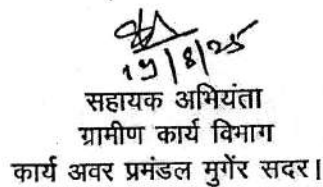 19/8/25
सहायक अभियंता
ग्रामीण कार्य विभाग
कार्य अवर प्रमंडल मुगेंर सदर।